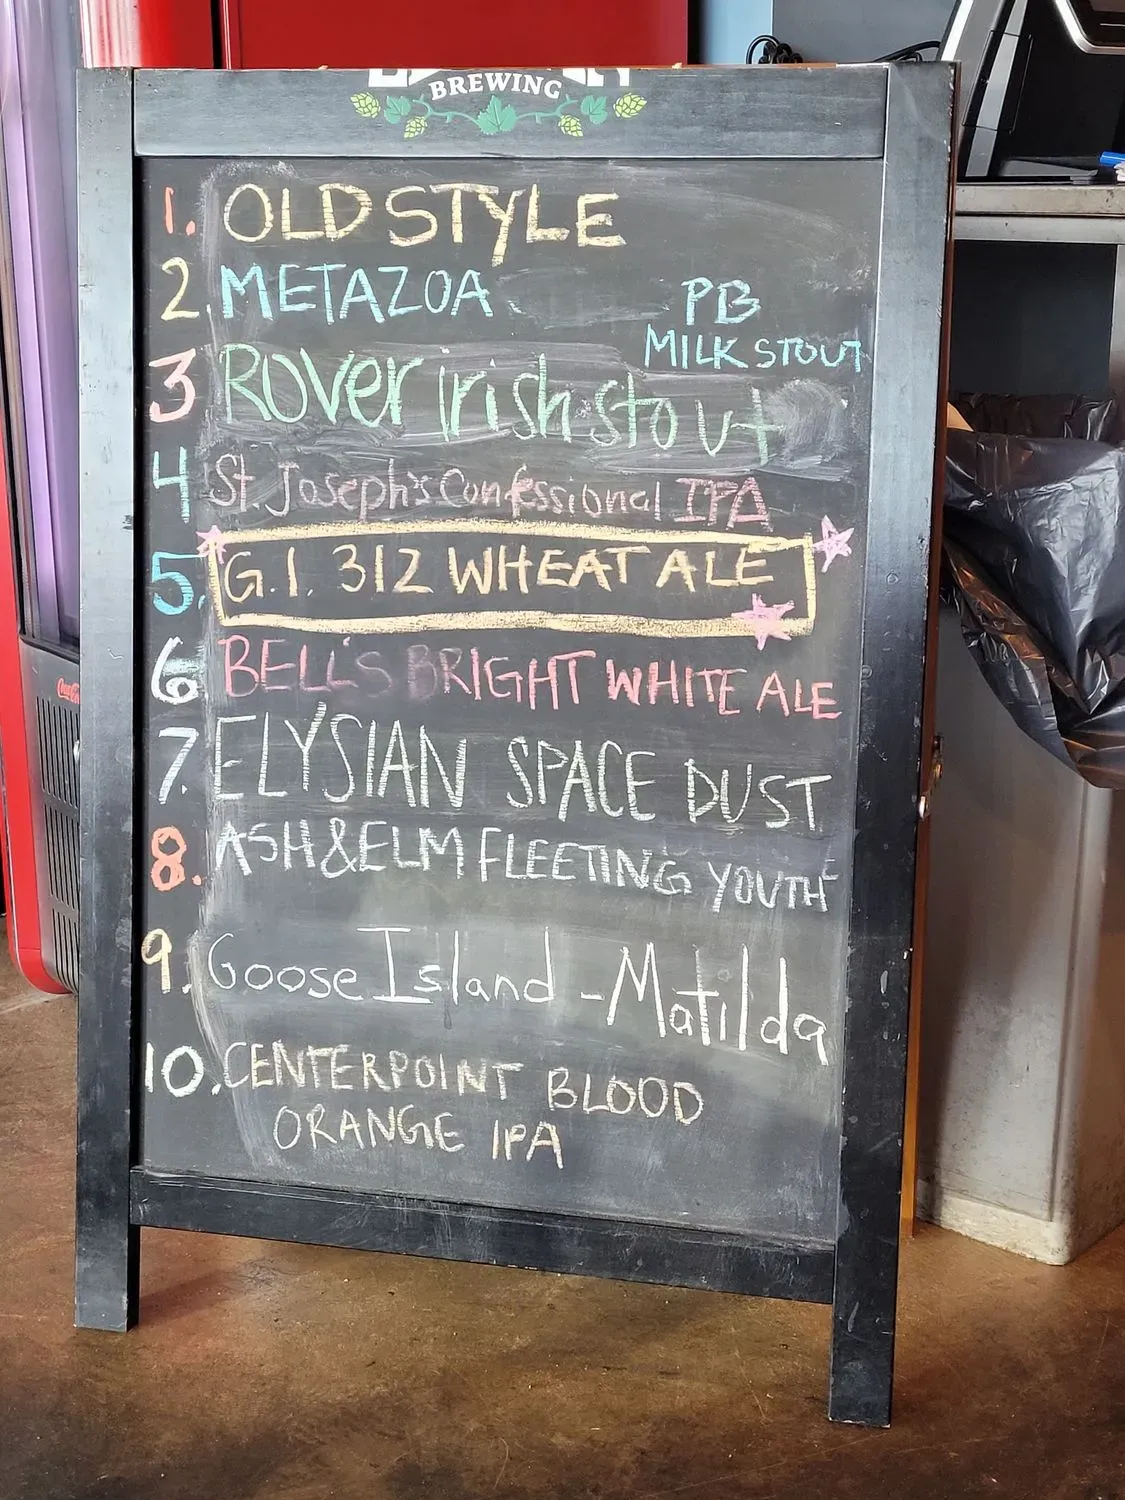 BREWING
1. OLD STYLE
2. METAZOA
PB
MILK STOUT
3 ROVer irish stout
4 St. Joseph's Confessional IPA
5. G.I. 312 WHEAT ALE
6 BELL'S BRIGHT WHITE ALE
7. ELYSIAN SPACE DUST
8. ASH & ELM FLEETING YOUTH
9. Goose Island - Matilda
10. CENTERPOINT BLOOD
ORANGE IPA
Coca-Cola